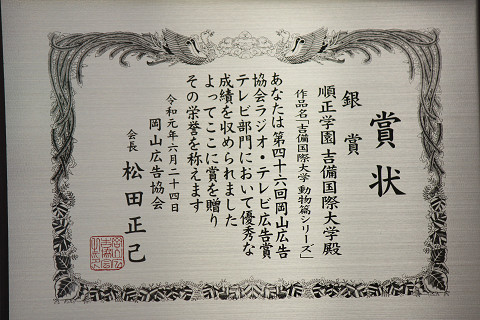 賞状
銀賞
順正学園 吉備国際大学殿
作品名「吉備国際大学 動物篇シリーズ」
あなたは第四十六回岡山広告
協会ラジオ・テレビ広告賞
テレビ部門において優秀な
成績を収められました
よってここに賞を贈り
その栄誉を称えます
令和元年六月二十四日
岡山広告協会
会長 松田正己